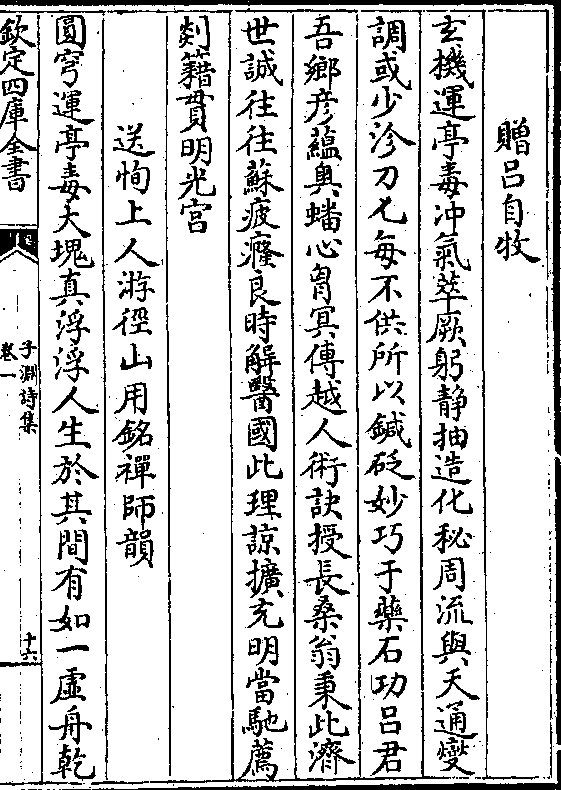 贈吕自牧
玄機運亭毒冲氣萃厥躬静抽造化秘周流與天通變
調或少沴刀匕每不供所以鍼砭妙巧于藥石功吕君
吾鄉彦蘊奥蟠心胷冥傳越人術訣授長桑翁秉此濟
世誠往往蘇疲癃良時解醫國此理諒擴充明當馳薦
剡籍貫明光宫
送恂上人游徑山用銘禪師韻
圓穹運亭毒大塊真浮浮人生於其間有如一虚舟乾
欽定四庫全書
子淵詩集
卷一
十六